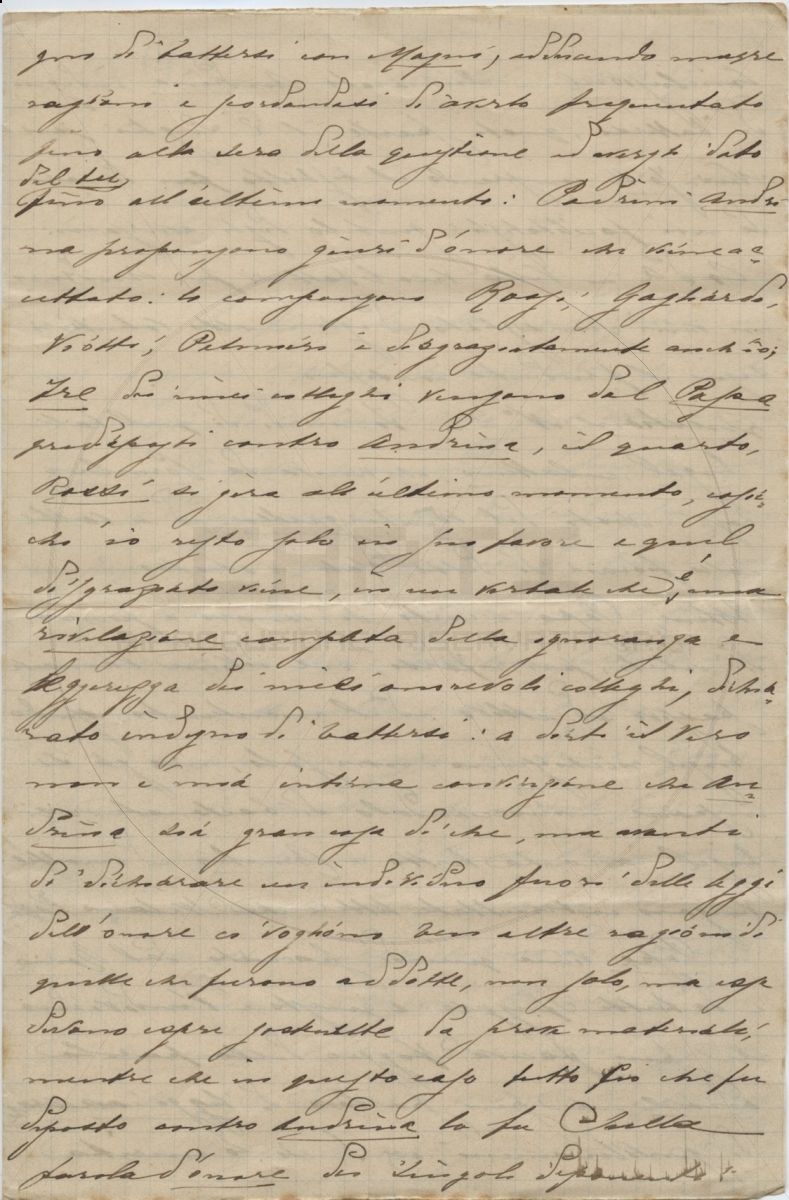 gno di battersi con Magni, adducendo magre
ragioni e scordandosi di averlo frequentato
fino alla sera della questione ed avergli dato
del tu
fino all'ultimo momento: I Padrini Andri
na propongono giurì d'onore che viene ac=
cettato: lo compongono Rossi, Gagliardo,
Viotti, e disgraziatamente anch'io;
Tre dei miei colleghi vengono dal Papa
predisposti contro Andrina, il quarto,
Rossi si gira all'ultimo momento, cosic=
chè io resto solo in suo favore e quel
disgraziato viene, in un verbale che è una
rivelazione completa della ignoranza e
leggerezza dei miei onorevoli colleghi, dichia=
rato indegno di battersi: a dirti il vero
non è mia intima convinzione che An=
drina sia gran cosa di che, ma avanti
di dichiarare un individuo fuori delle leggi
dell'onore ci vogliono ben altre ragioni di
quelle che furono addotte, non solo, ma esse
devono essere sostenute da prove materiali,
mentre che in questo caso tutto ciò che fu
deposto contro Andrina lo fu
parola d'onore dei singoli deponenti.